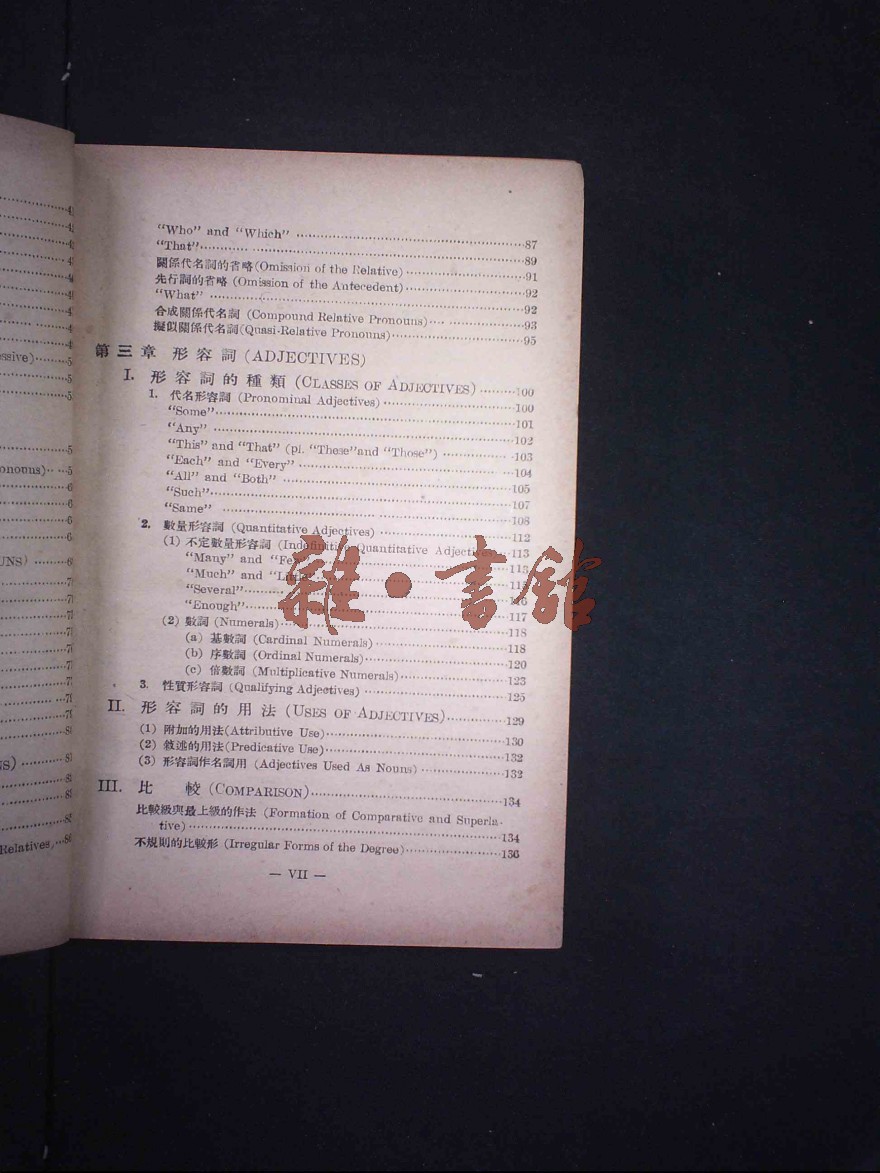 "Who" and "Which" ........87
"That"........89
關係代名詞的省略(Omission of the Relative)........91
先行詞的省略 (Omission of the Antecedent)........92
"What" ........92
合成關係代名詞 (Compound Relative Pronouns)........93
擬似關係代名詞(Quasi-Relative Pronouns)........95
第三章 形容詞 (ADJECTIVES)
I. 形容詞的種類 (CLASSES OF ADJECTIVES)........100
1. 代名形容詞 (Pronominal Adjectives)........100
"Some"........101
"Any" ........102
"This" and "That" (pl. "These"and "Those")........103
"Each" and "Every"........104
"All" and "Both" ........105
"Such"........107
"Same" ........108
2. 數量形容詞 (Quantitative Adjectives)........112
(1) 不定數量形容詞 (Indefinitive Quantitative Adjectives........113
"Many" and "Few"........113
"Much" and "Little"........115
"Several"........116
"Enough"........117
(2) 數詞 (Numerals)........118
(a) 基數詞 (Cardinal Numerals)........118
(b) 序數詞 (Ordinal Numerals)........120
(c) 倍數詞 (Multiplicative Numerals)........123
3. 性質形容詞 (Qualifying Adjectives)........125
II. 形容詞的用法 (USES OF ADJECTIVES)........129
(1) 附加的用法(Attributive Use)........130
(2) 敘述的用法(Predicative Use)........132
(3) 形容詞作名詞用 (Adjectives Used As Nouns)........132
III. 比 較 (COMPARISON)........134
比較級與最上級的作法 (Formation of Comparative and Superla-
tive)........134
不規則的比較形 (Irregular Forms of the Degree)........136
— VII —
雜·書館